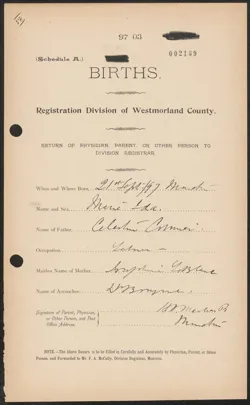 97 03
002169
(Schedule A.)
BIRTHS.
Registration Division of Westmorland County.
RETURN OF PHYSICIAN, PARENT, OR OTHER PERSON TO
DIVISION REGISTRAR.
When and Where Born, 21st Sept/97
Name and Sex, Marie Ida
Name of Father, Celestin
Occupation,
Maiden Name of Mother, Josephine LeBlanc
Name of Accoucheur,
Signature of Parent, Physician,
or Other Person, and Post
Office Address.
NOTE.—The Above Return is to be Filled in Carefully and Accurately by Physician, Parent or Other
Person, and Forwarded to Mr. F. A. McCully, Division Registrar, Moncton.